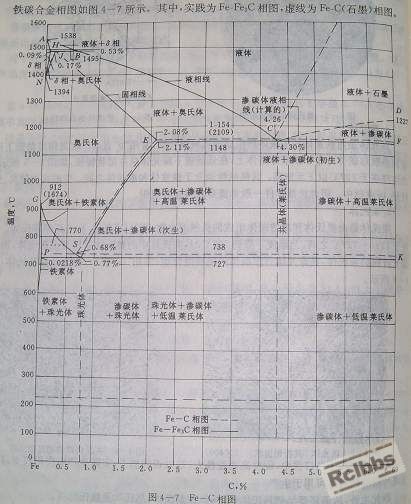 铁碳合金相图如图4—7所示。其中,实践为Fe-Fe₃C相图,虚线为Fe-C(石墨)相图。
1600
A
1538
1500
H
液体+δ相
0.53%
液体
0.09%
δ相
J
B
1495
0.17%
液相线
N
δ相+奥氏体
1400
1394
固相线
渗碳体液相线(计算的)
液体+石墨
1300
液体+奥氏体
4.26
D
1227
1200
1.154
(2109)
C
液体+渗碳体
2.08%
E
F
1100
奥氏体
2.11%
1148
4.30%
液体+渗碳体(初生)
1000
912
(1674)
奥氏体+渗碳体
+高温莱氏体
共晶体(莱氏体)
渗碳体+高温莱氏体
G
900
奥氏体+铁素体
温度,℃
800
770
奥氏体+渗碳体(次生)
S
0.68%
738
P
K
700
0.0218%
0.77%
727
铁素体
600
铁素体
+珠光体
珠光体
渗碳体
+珠光体
珠光体+渗碳体
+低温莱氏体
渗碳体+低温莱氏体
500
400
300
200
Fe—C相图
100
Fe—Fe₃C相图
0
Fe
0.5
1.0
1.5
2.0
2.5
3.0
3.5
4.0
4.5
5.0
C,%
图4—7 Fe—C相图
Rclbbs